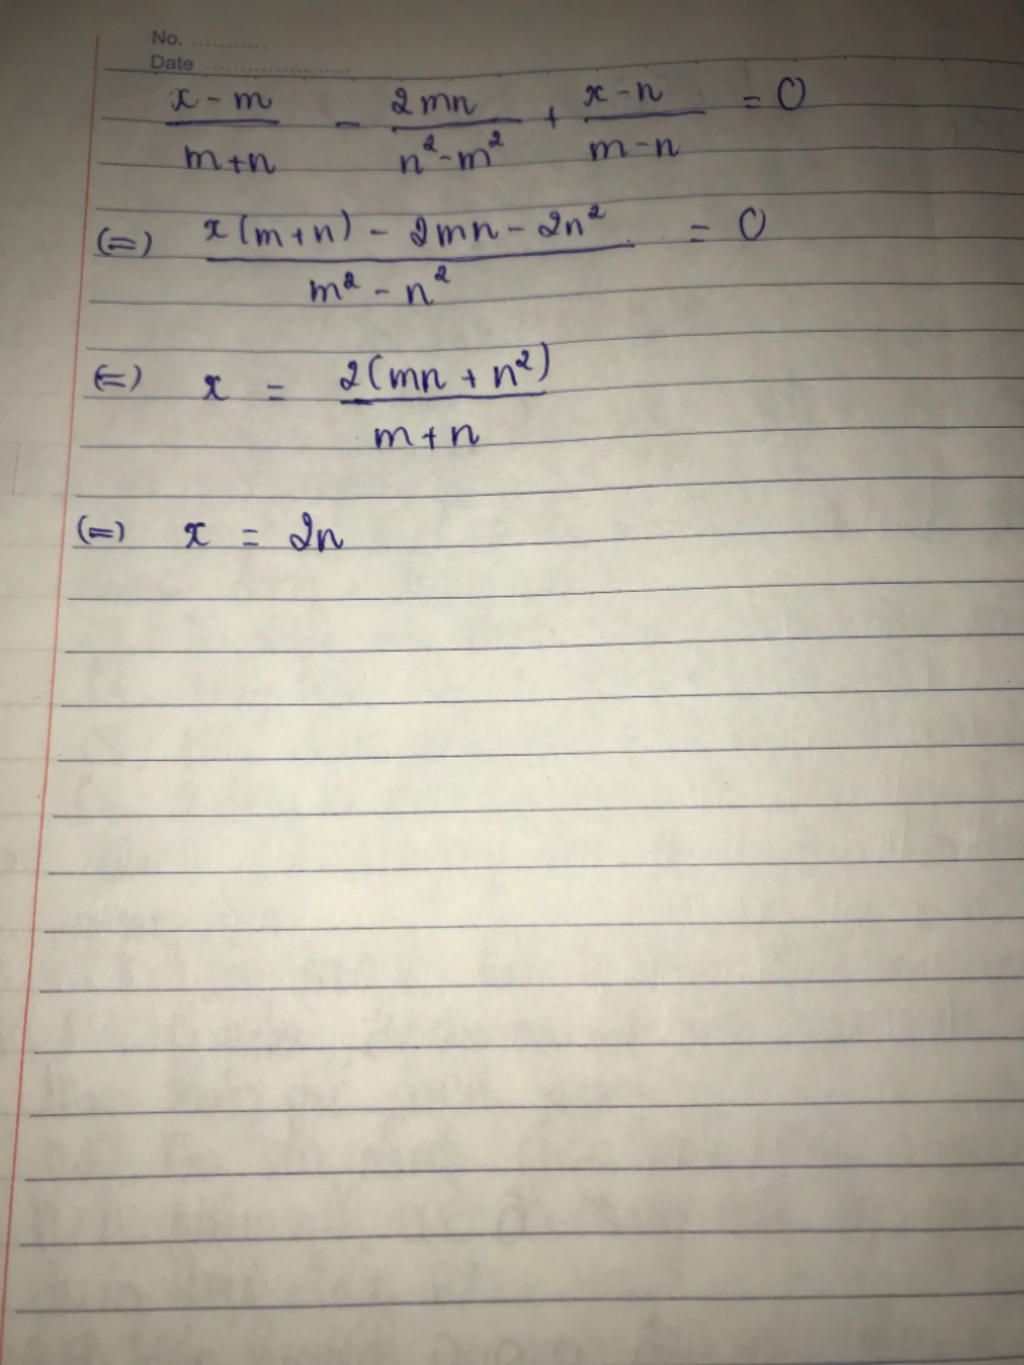 No. ............
Date ........................
x - m / m + n - 2mn / n² - m² + x - n / m - n = 0
(=) x(m + n) - 2mn - 2n² / m² - n² = 0
(=) x = 2(mn + n²) / m + n
(=) x = 2n